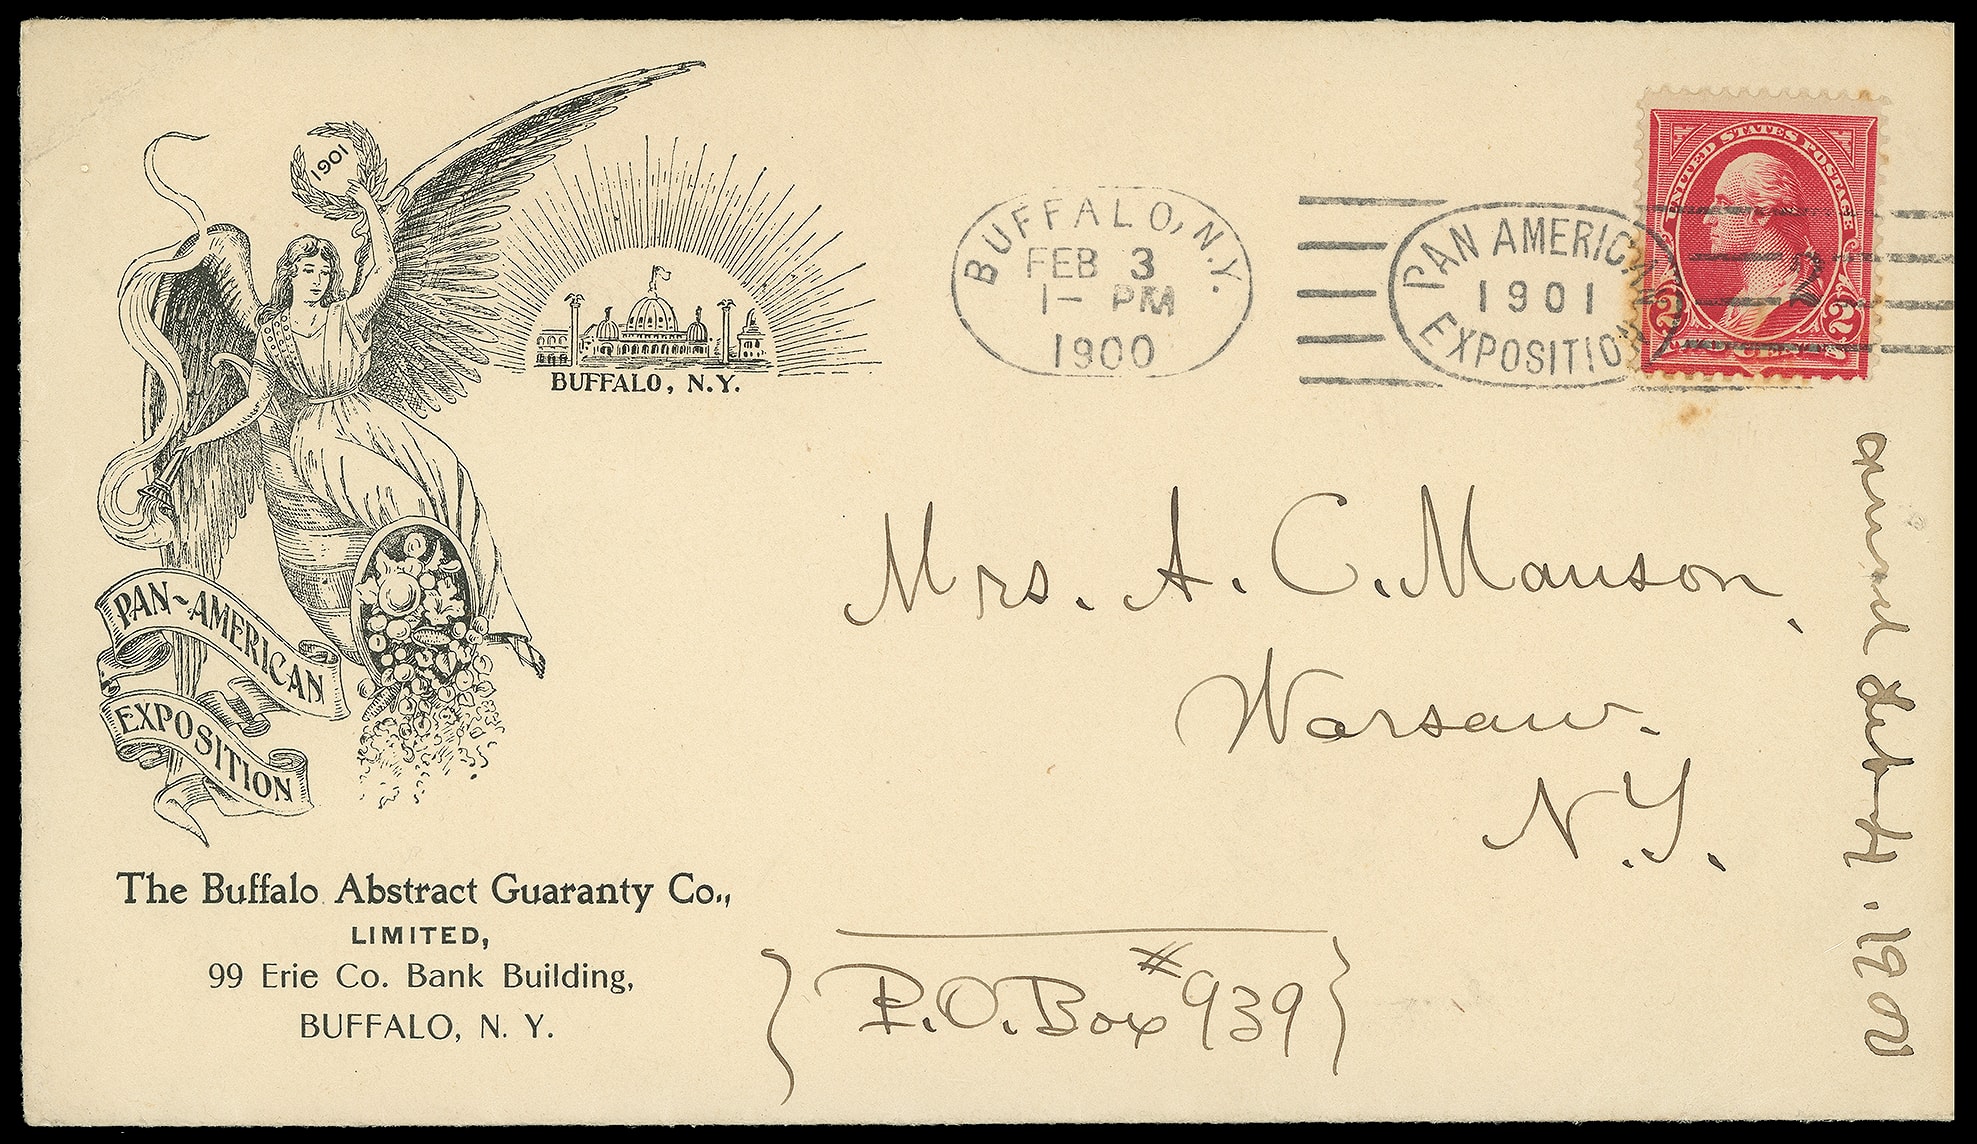 1901
BUFFALO, N.Y.
PAN-AMERICAN
EXPOSITION
The Buffalo Abstract Guaranty Co.,
LIMITED,
99 Erie Co. Bank Building,
BUFFALO, N. Y.
BUFFALO, N.Y.
FEB 3
1- PM
1900
PAN AMERICAN
1901
EXPOSITION
UNITED STATES POSTAGE
2 2
TWO CENTS
2
Mrs. A. C. Manson,
Warsaw.
N.Y.
{P.O. Box #939}
1902